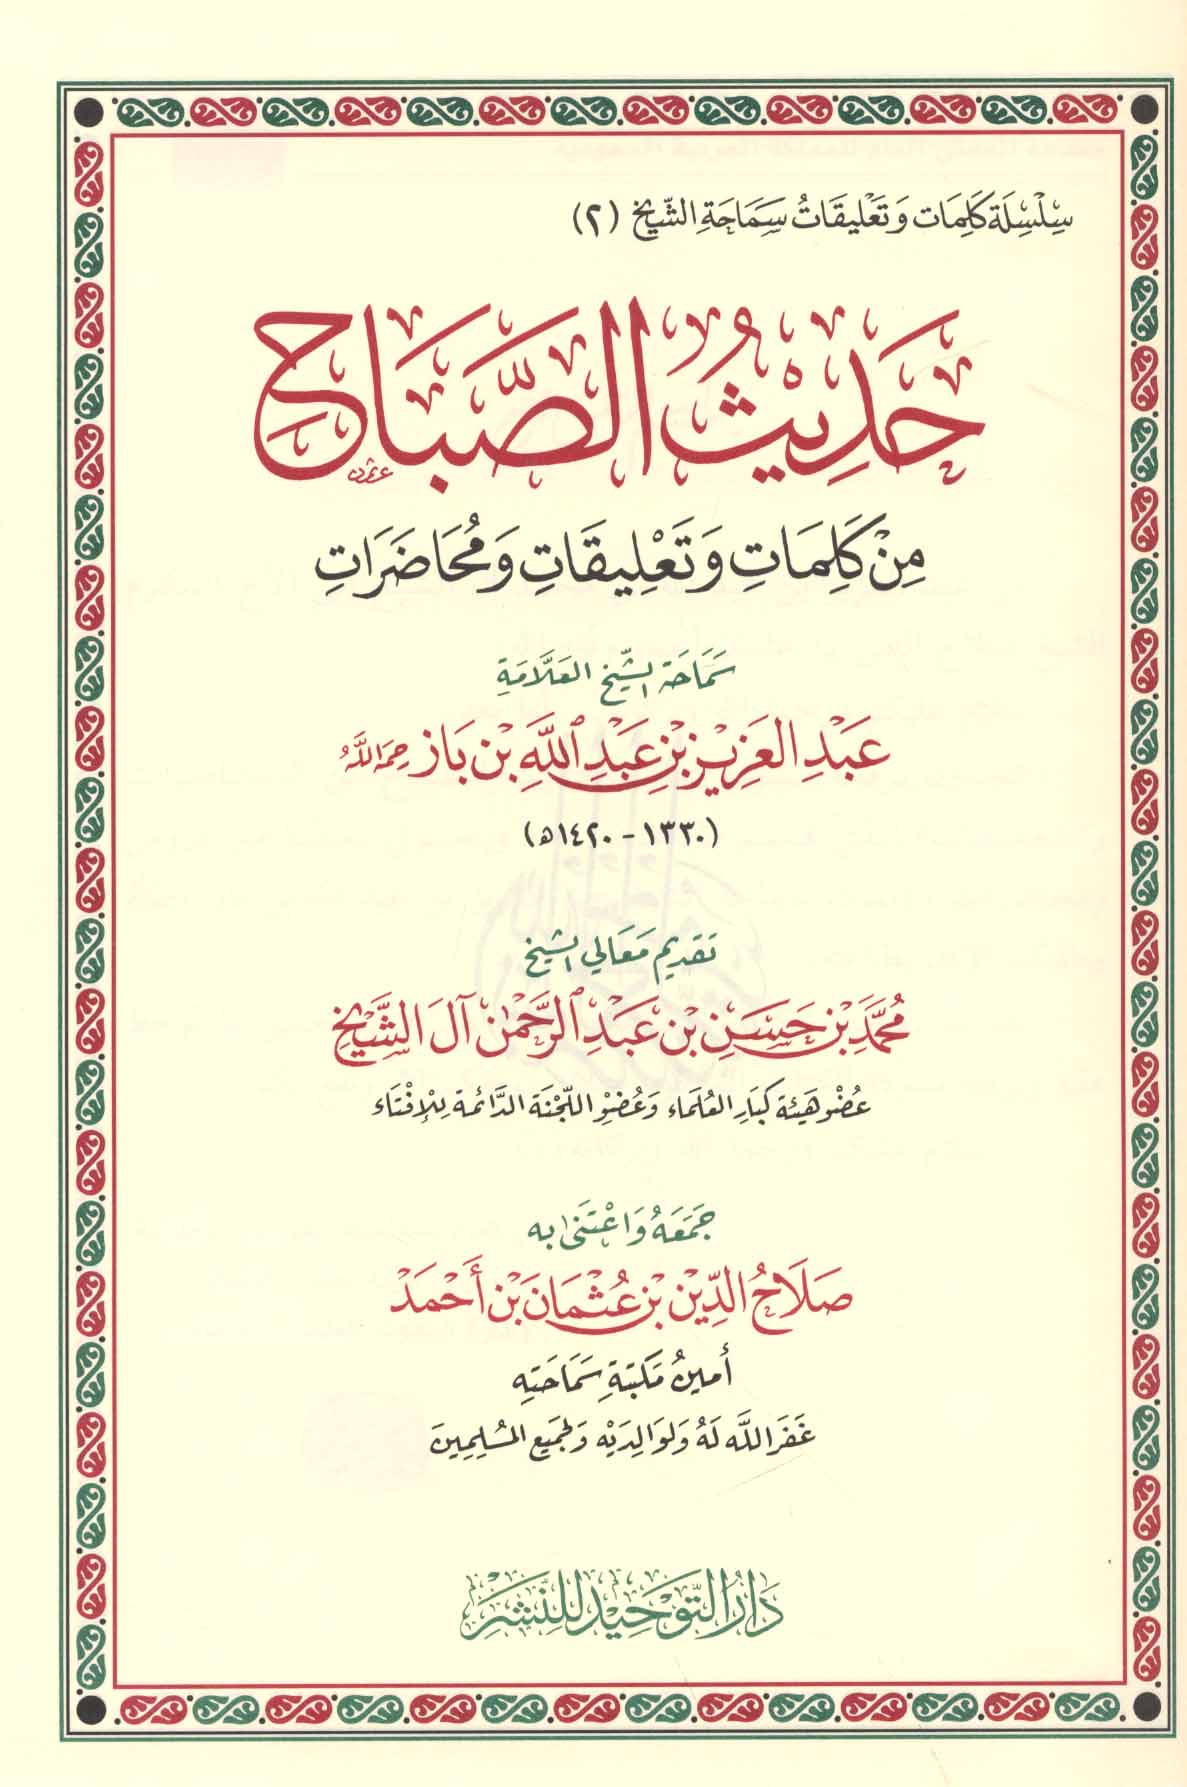 سِلْسِلَة كَلِمَات وَتَعْلِيقَاتُ سَمَاحَةِ الشَّيْخ (٢)
حَدِيثُ الصَّبَاحِ
مِنْ كَلِمَاتِ وَتَعْلِيقَاتِ وَمُحَاضَرَاتِ
سَمَاحَة الشَّيْخ العَلَّامَةِ
عَبْدِ العَزِيْزِ بْنِ عَبْدِ اللَّهِ بْنِ بَاز رحمَه اللَّهُ
(١٣٣٠ - ١٤٢٠ه)
تَقديم مَعَالي الشَّيخ
مُحَمَّد بْن حَسَن بْن عَبْد الرَّحْمٰن آل الشَّيْخ
عُضْو هَيئة كبَارِ العُلَمَاء وَعُضْو اللَّجْنَة الدَّائمة لِلإِفْتَاء
جَمَعَهُ وَاعْتَنىٰ به
صَلَاحُ الدِّيْن بْن عُثْمَان بْن أَحْمَدْ
أمينُ مَكتبَةِ سَمَاحَتِه
غَفَرَ اللَّه لَهُ وَلوَالِدِيْه وَلجَمِيْع المُسْلِمِينَ
دَارُ التَّوْحِيْدِ لِلنَّشْرِ